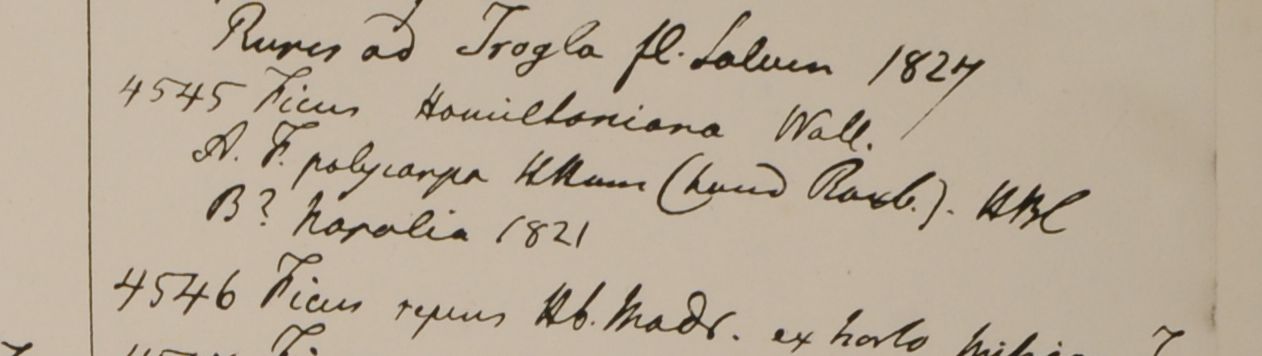 Rupes ad Trogla fl. Saluen 1827
4545 Ficus Hamiltoniana Wall.
A. F. polycarpa HHam (haud Roxb.). HBC
B? Napalia 1821
4546 Ficus repens Hb. Madr. ex horto